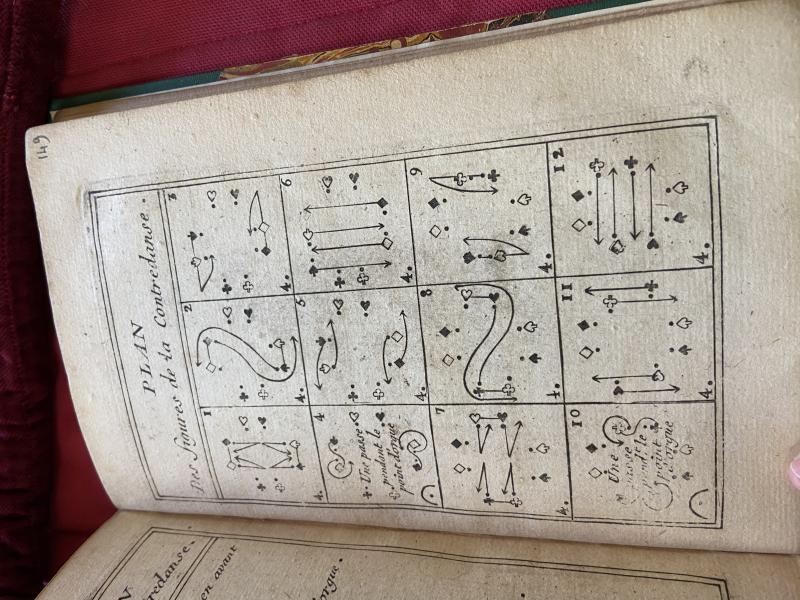 149
PLAN
Des figures de la Contredanse.
1
2
3
4.
4
Une passe
pendant le
point d'orgue
5
4.
6
4.
7
4.
8
4.
9
4.
10
Une
passe
pend. le
point
d'orgue
11
4.
12
4.
redanse.
en avant
orgue.